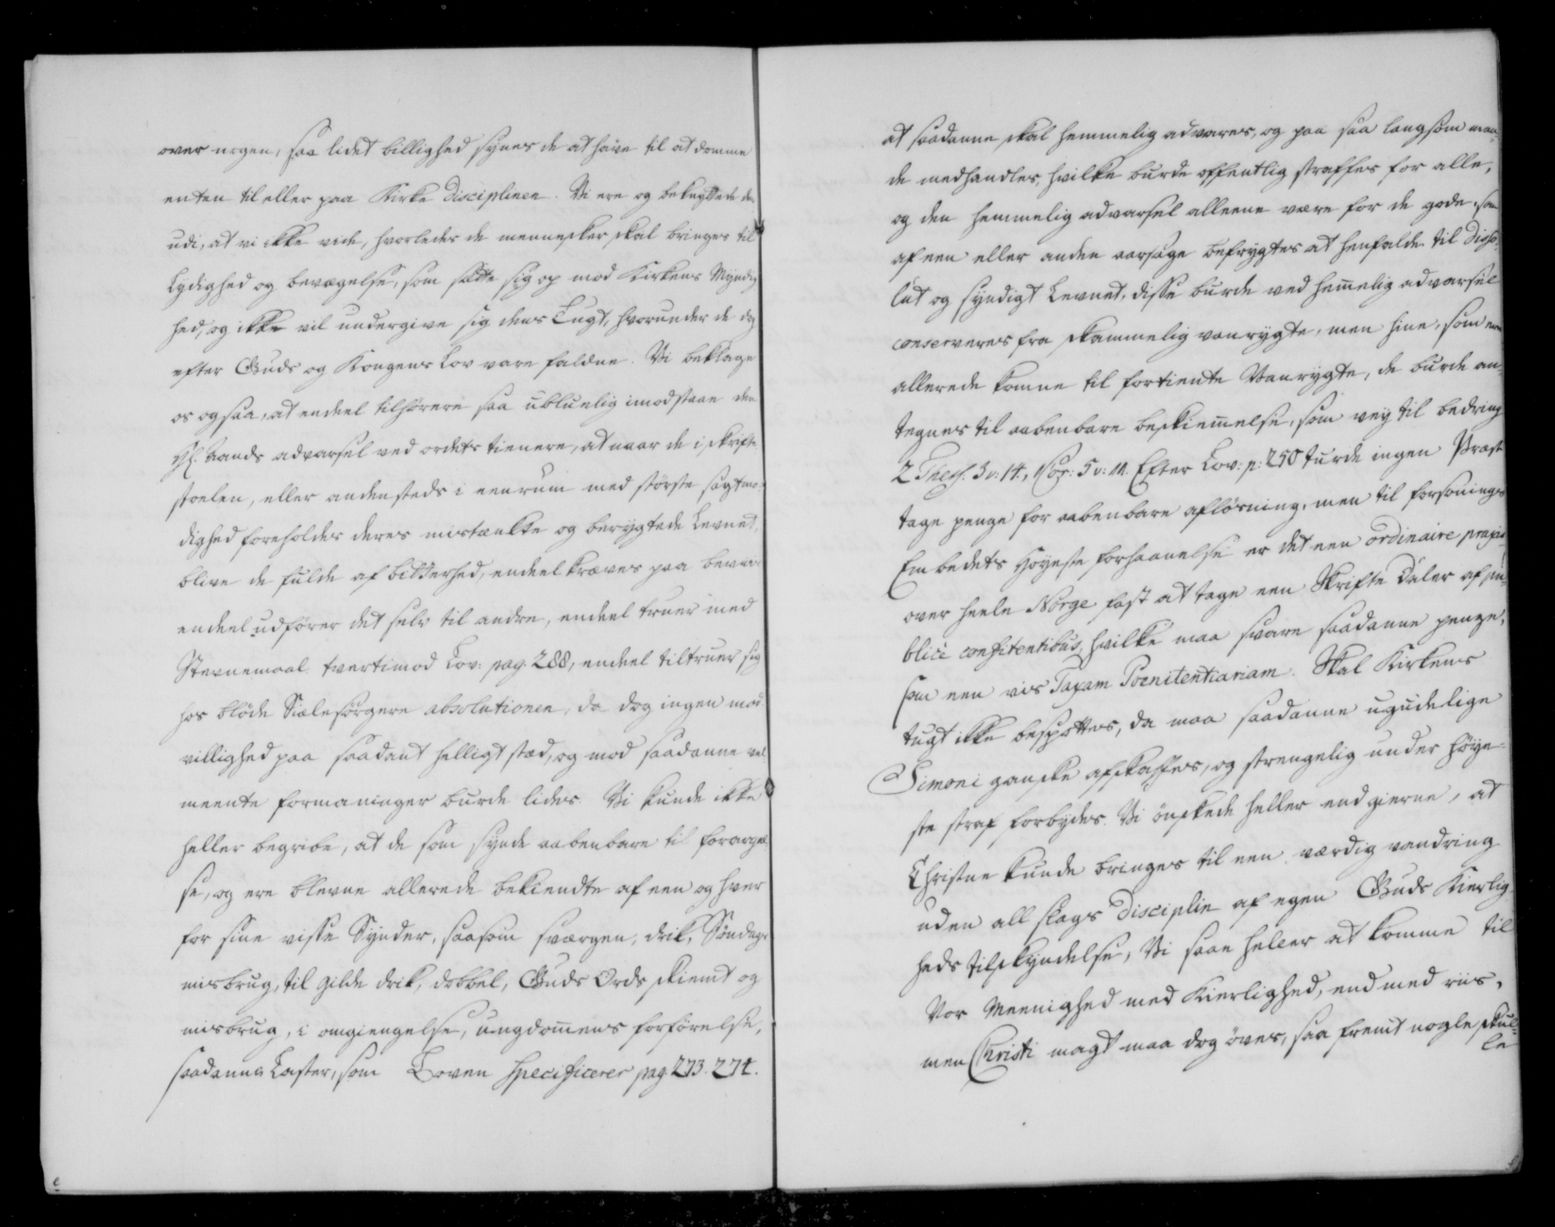 over nogen, saa lidet billighed synes de at have til at domme
enten til eller paa Kirke Disciplinen. Vi ere og bekyttede der
udi, at vi ikke vide, hvorledes de mennesker skal bringes til
Lydighed og bevægelse, som sætte sig op mod Kirkens Myndig
hed, og ikke vil undergive sig dens Tugt, hvorunder de dog
efter Guds og Kongens Lov vare faldne. Vi beklage
os ogsaa, at endeel tilhørere saa ubluelig imodstaae den
Hl: Aands advarsel ved ordets tienere, at naar de i skrifte
stoelen, eller andensteds i eenrum med største sagtmo-
dighed foreholdes deres mistænkte og berygtede Levnet,
blive de fulde af bitterhed, endeel kræves paa beviis
endeel udfører det selv til andre, endeel truer med
Stevnemaal tvertimod Lov: pag: 288, endeel tiltruer sig
hos bløde Siælesørgere absolutionen, da dog ingen mod
villighed paa saadant helligt stæd, og mod saadanne vel
meente formaninger burde lides. Vi kunde ikke
heller begribe, at de som synde aabenbare til forargel
se, og ere blevne allerede bekiendte af een og hver
for sine visse Synder, saasom sværgen, drik, Søndags
misbrug, til gilde drik, dobbel, Guds Ords skiemt og
misbrug, i omgiengelse, ungdommens forførelse,
saadanne Laster, som Loven specificerer pag 273. 274.
at saadanne skal hemmelig advares, og paa saa langsom maa-
de medhandles, hvilke burde offentlig straffes for alle,
og den hemmelig advarsel alleene være for de gode, som
af een eller anden aarsage befrygtes at henfalde til disso-
lut og syndigt Levnet, disse burde ved hemelig advarsel
conserveres fra skammelig vanrygte, men hine, som ere
allerede komne til fortiente Vanrygte, de burde an-
tegnes til aabenbare beskiemmelse, som vey til bedring
2 Thess. 3 v: 14, 1 Cor: 5 v: 11. Efter Lov: p: 250 turde ingen Præst
tage penge for aabenbare afløsning, men til forsonings
Embedets høyeste forhaanelse er det een ordinaire praxis
over heele Norge fast at tage een Skrifte Daler af pu-
blicè confitentibus, hvilke maa svare saadanne penge,
som een vis Taxam Poenitentiariam. Skal Kirkens
tugt ikke bespottes, da maa saadanne ugudelige
Simoni ganske afskaffes, og strengelig under høye-
ste straf forbydes. Vi ønskede heller end gierne, at
Christne kunde bringes til een værdig vandring
uden all slags Disciplin af egen Guds Kierlig-
heds tilskyndelse, Vi saae heller at komme til
Vor Meenighed med Kierlighed, end med riis,
men Christi magt maa dog øves, saa fremt nogle skul-
le